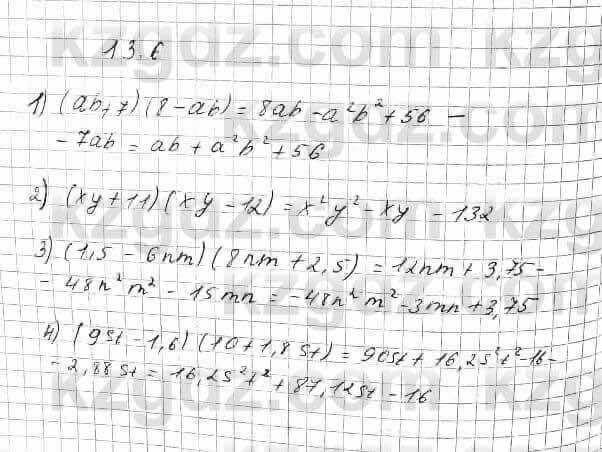 13.6
1) (ab+7)(8-ab) = 8ab - a²b² + 56 -
- 7ab = ab + a²b² + 56
2) (xy+11)(xy-12) = x²y² - xy - 132
3) (1,5 - 6nm)(8nm + 2,5) = 12nm + 3,75 -
- 48n²m² - 15mn = -48n²m² - 3mn + 3,75
4) (9st - 1,6)(10 + 1,8st) = 90st + 16,2s²t² - 16 -
- 2,88st = 16,2s²t² + 87,12st - 16
kzgdz.com